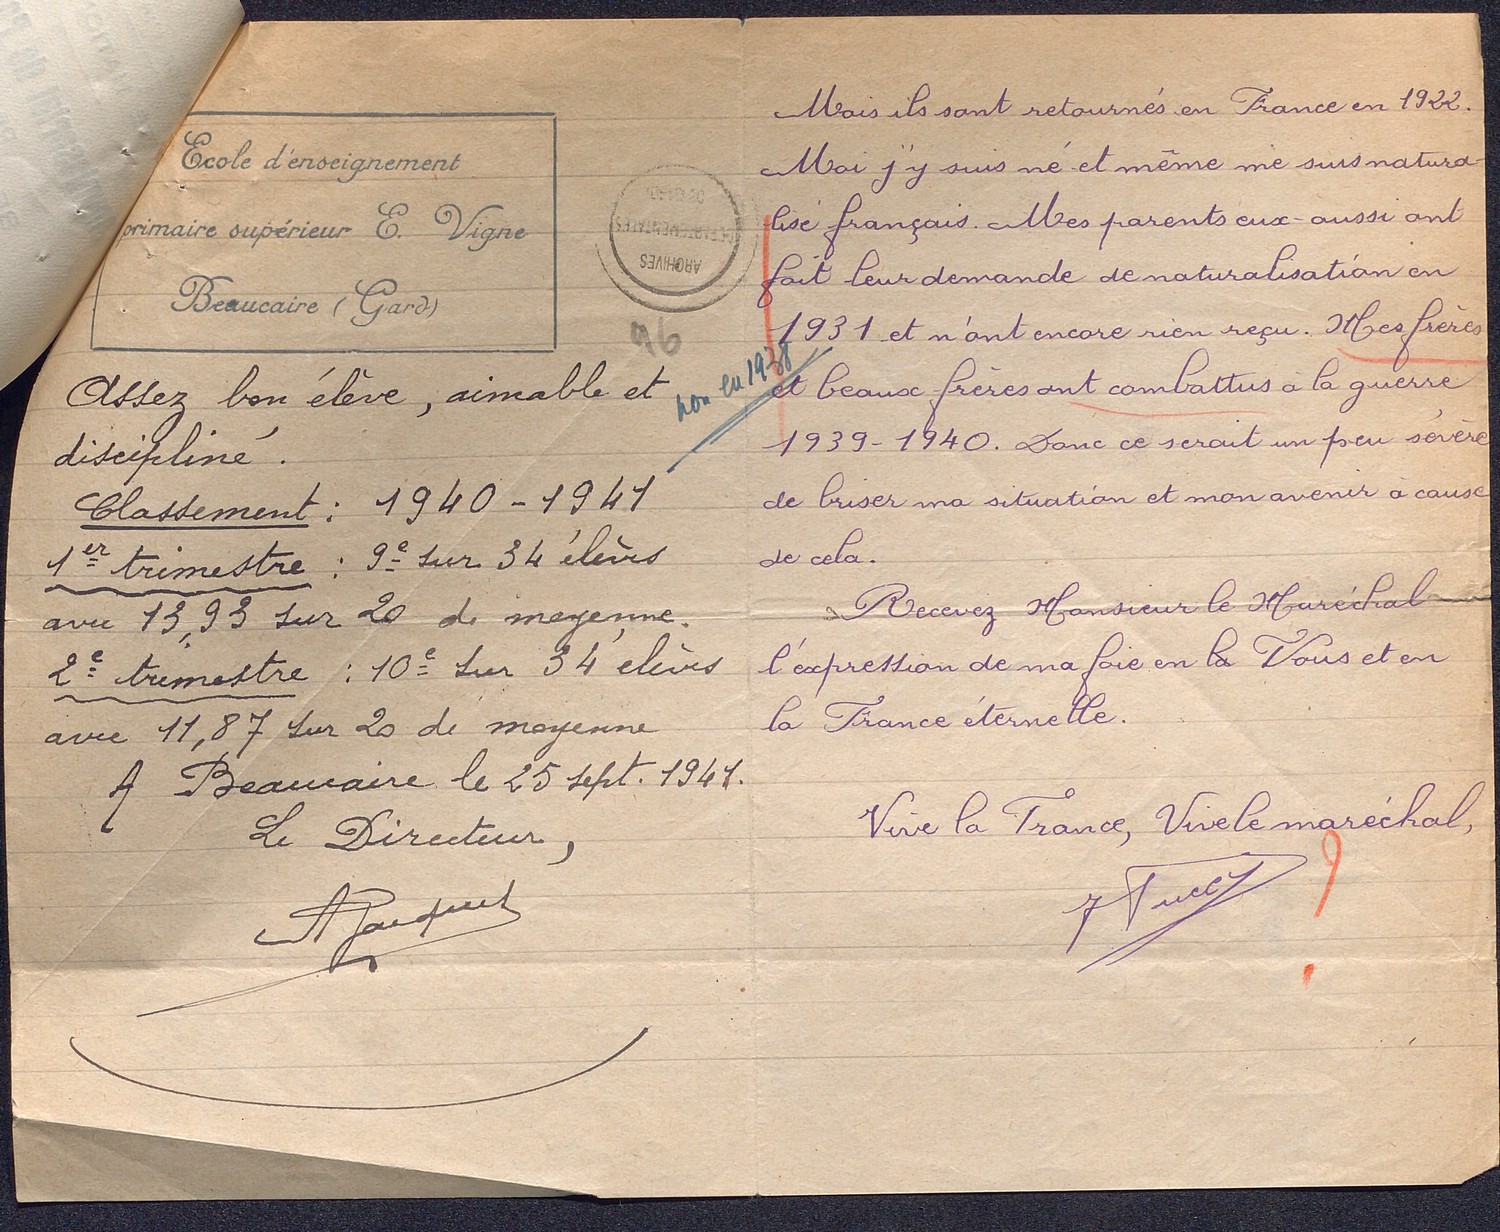 Ecole d'enseignement
primaire supérieur E. Vigne
Beaucaire (Gard)
ARCHIVES
DEPARTEMENTALES
DU GARD
96
Assez bon élève, aimable et
discipliné.
Classement : 1940 - 1941
1er trimestre : 9e sur 34 élèves
avec 13,93 sur 20 de moyenne.
2e trimestre : 10e sur 34 élèves
avec 11,87 sur 20 de moyenne
A Beaucaire le 25 sept. 1941.
Le Directeur,
non en 1938
Mais ils sont retournés en France en 1922.
Moi j'y suis né et même me suis natura-
lisé français. Mes parents eux-aussi ont
fait leur demande de naturalisation en
1931 et n'ont encore rien reçu. Mes frères
et beaux frères ont combattus à la guerre
1939-1940. Donc ce serait un peu sévère
de briser ma situation et mon avenir à cause
de cela.
Recevez Monsieur le Maréchal
l'expression de ma foie en la Vous et en
la France éternelle.
Vive la France, Vive le maréchal,
J Tuccy
?